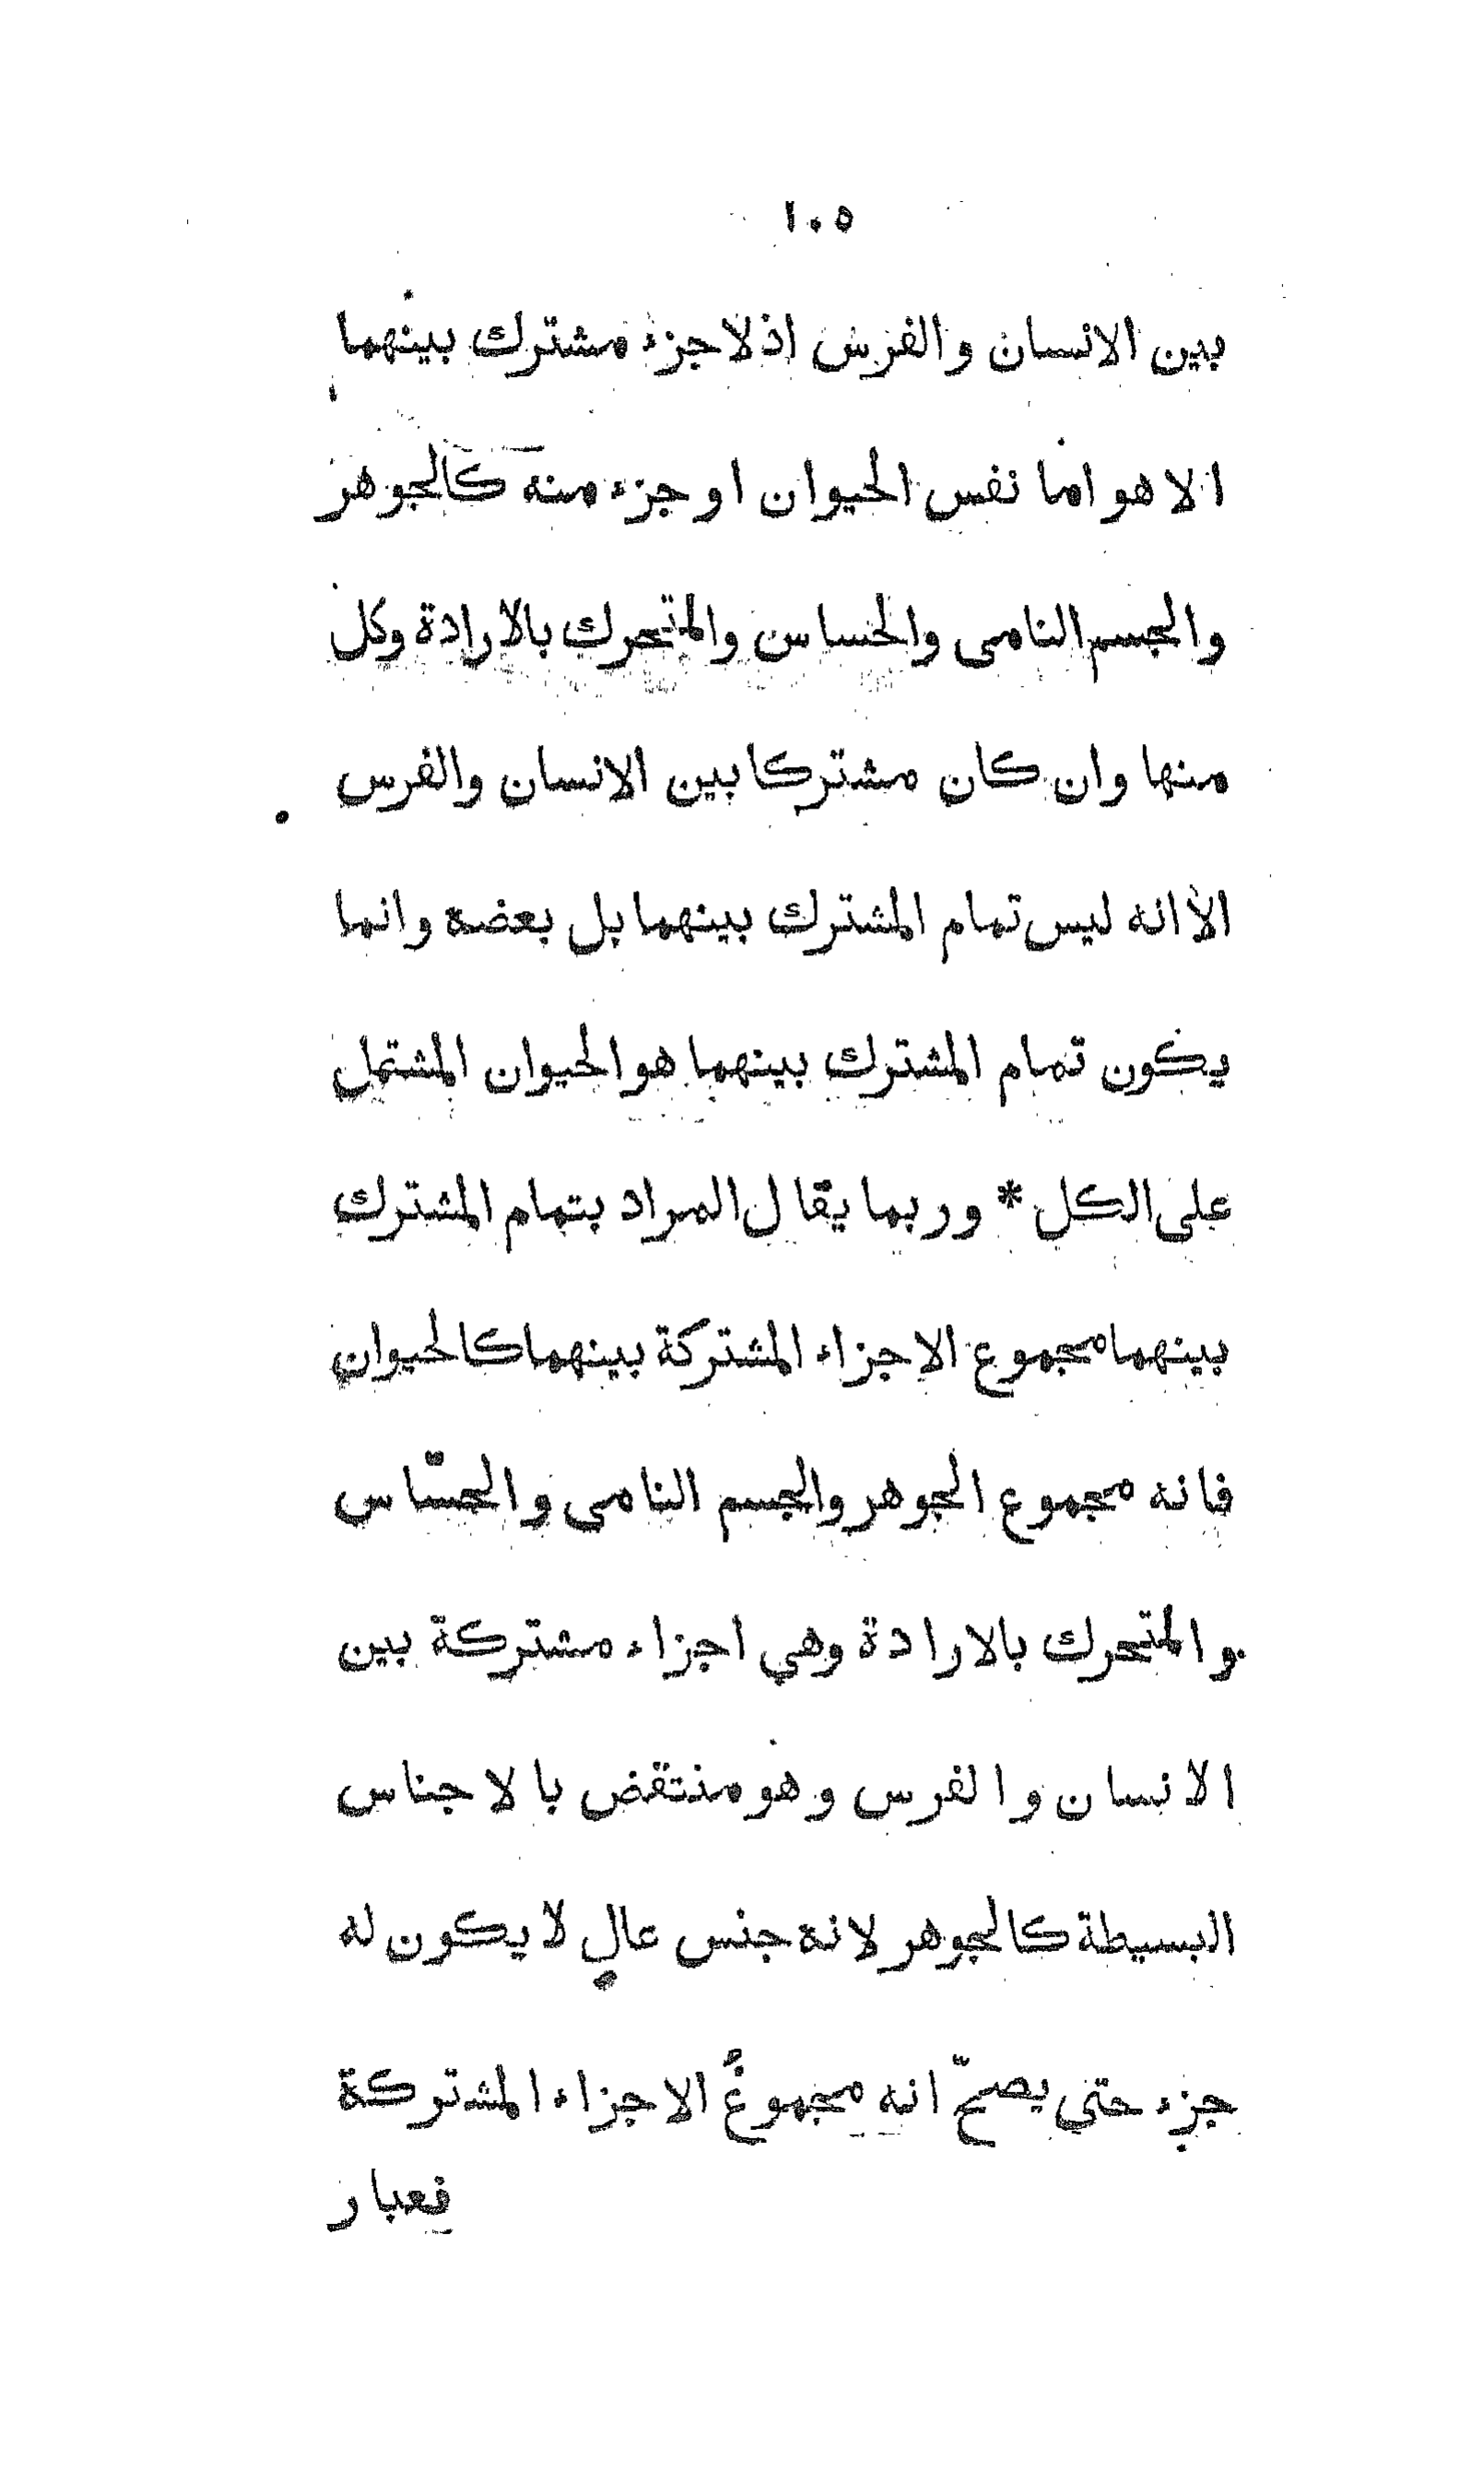 ١٠٥
بين الانسان والفرس اذلاجزء مشترك بينهما
الا هو اما نفس الحيوان او جزء منه كالجوهر
والجسم النامى والحساس والمتحرك بالارادة وكل
منها وان كان مشتركا بين الانسان والفرس
الا انه ليس تمام المشترك بينهما بل بعضه وانما
يكون تمام المشترك بينهما هو الحيوان المشتمل
على الكل * وربما يقال المراد بتمام المشترك
بينهما مجموع الاجزاء المشتركة بينهما كالحيوان
فانه مجموع الجوهر والجسم النامى والحسّاس
والمتحرك بالارادة وهي اجزاء مشتركة بين
الانسان والفرس وهو منتقض بالاجناس
البسيطة كالجوهر لانه جنس عالٍ لا يكون له
جزء حتى يصحّ انه مجموعُ الاجزاء المشتركة
فعبار